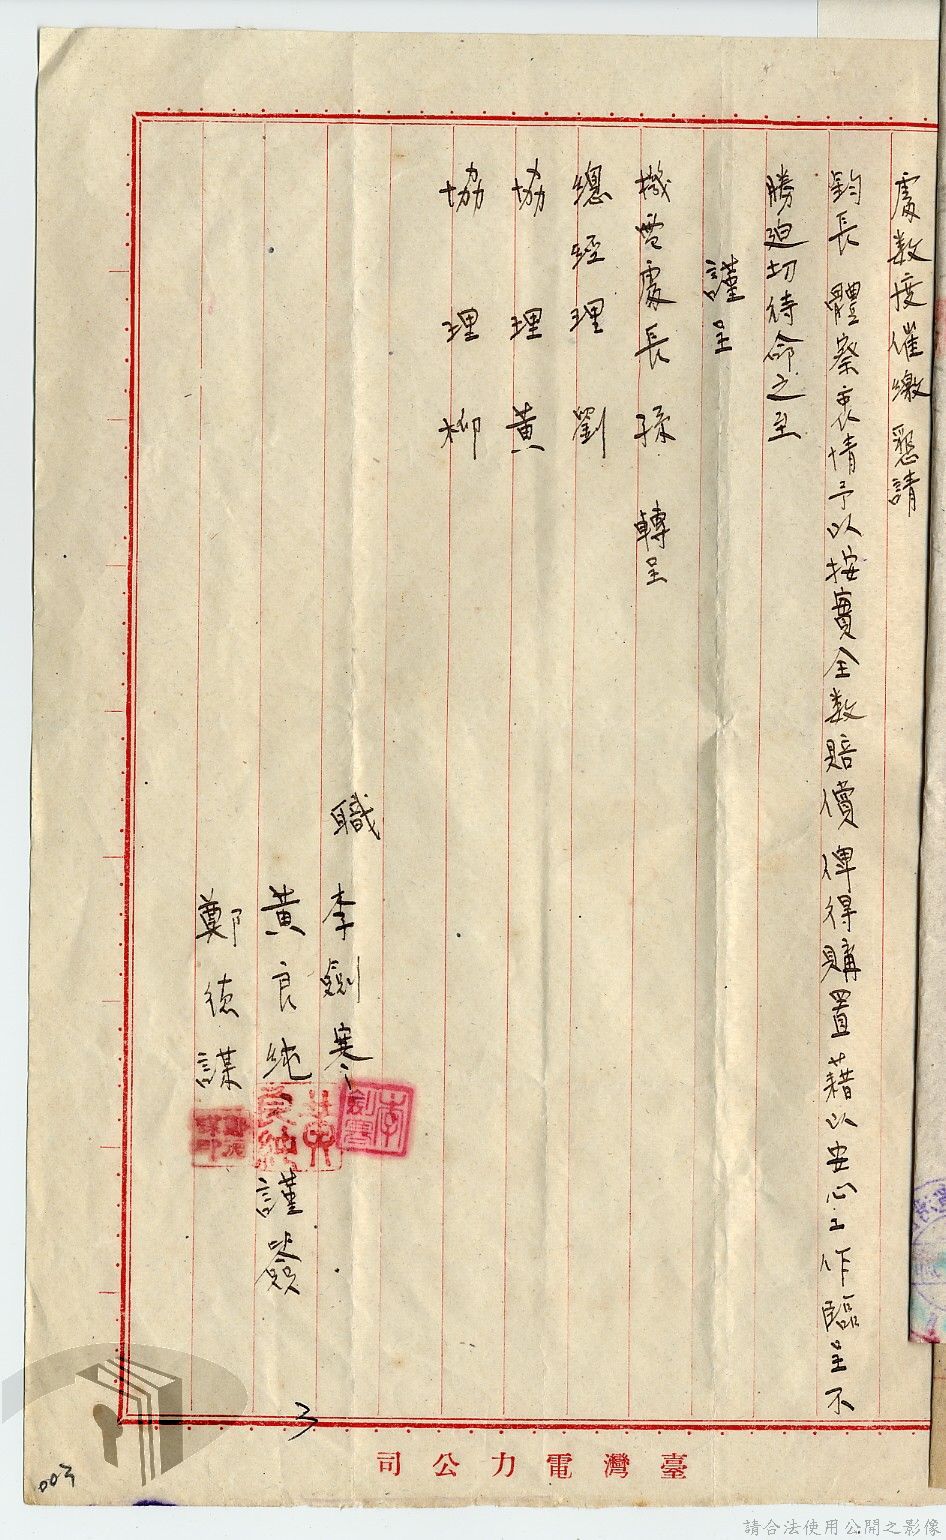 處数度催繳 懇請
鈞長 體察衷情予以按實全数賠償俾得購置藉以安心工作臨呈不
勝迫切待命之至
謹呈
機電處長 孫 轉呈
總經理 劉
協理 黃
協理 柳
職 李劍寒
黃良純 謹簽
鄭德謀
李劍寒
黃良純
3
司公力電灣臺
003
請合法使用公開之影像